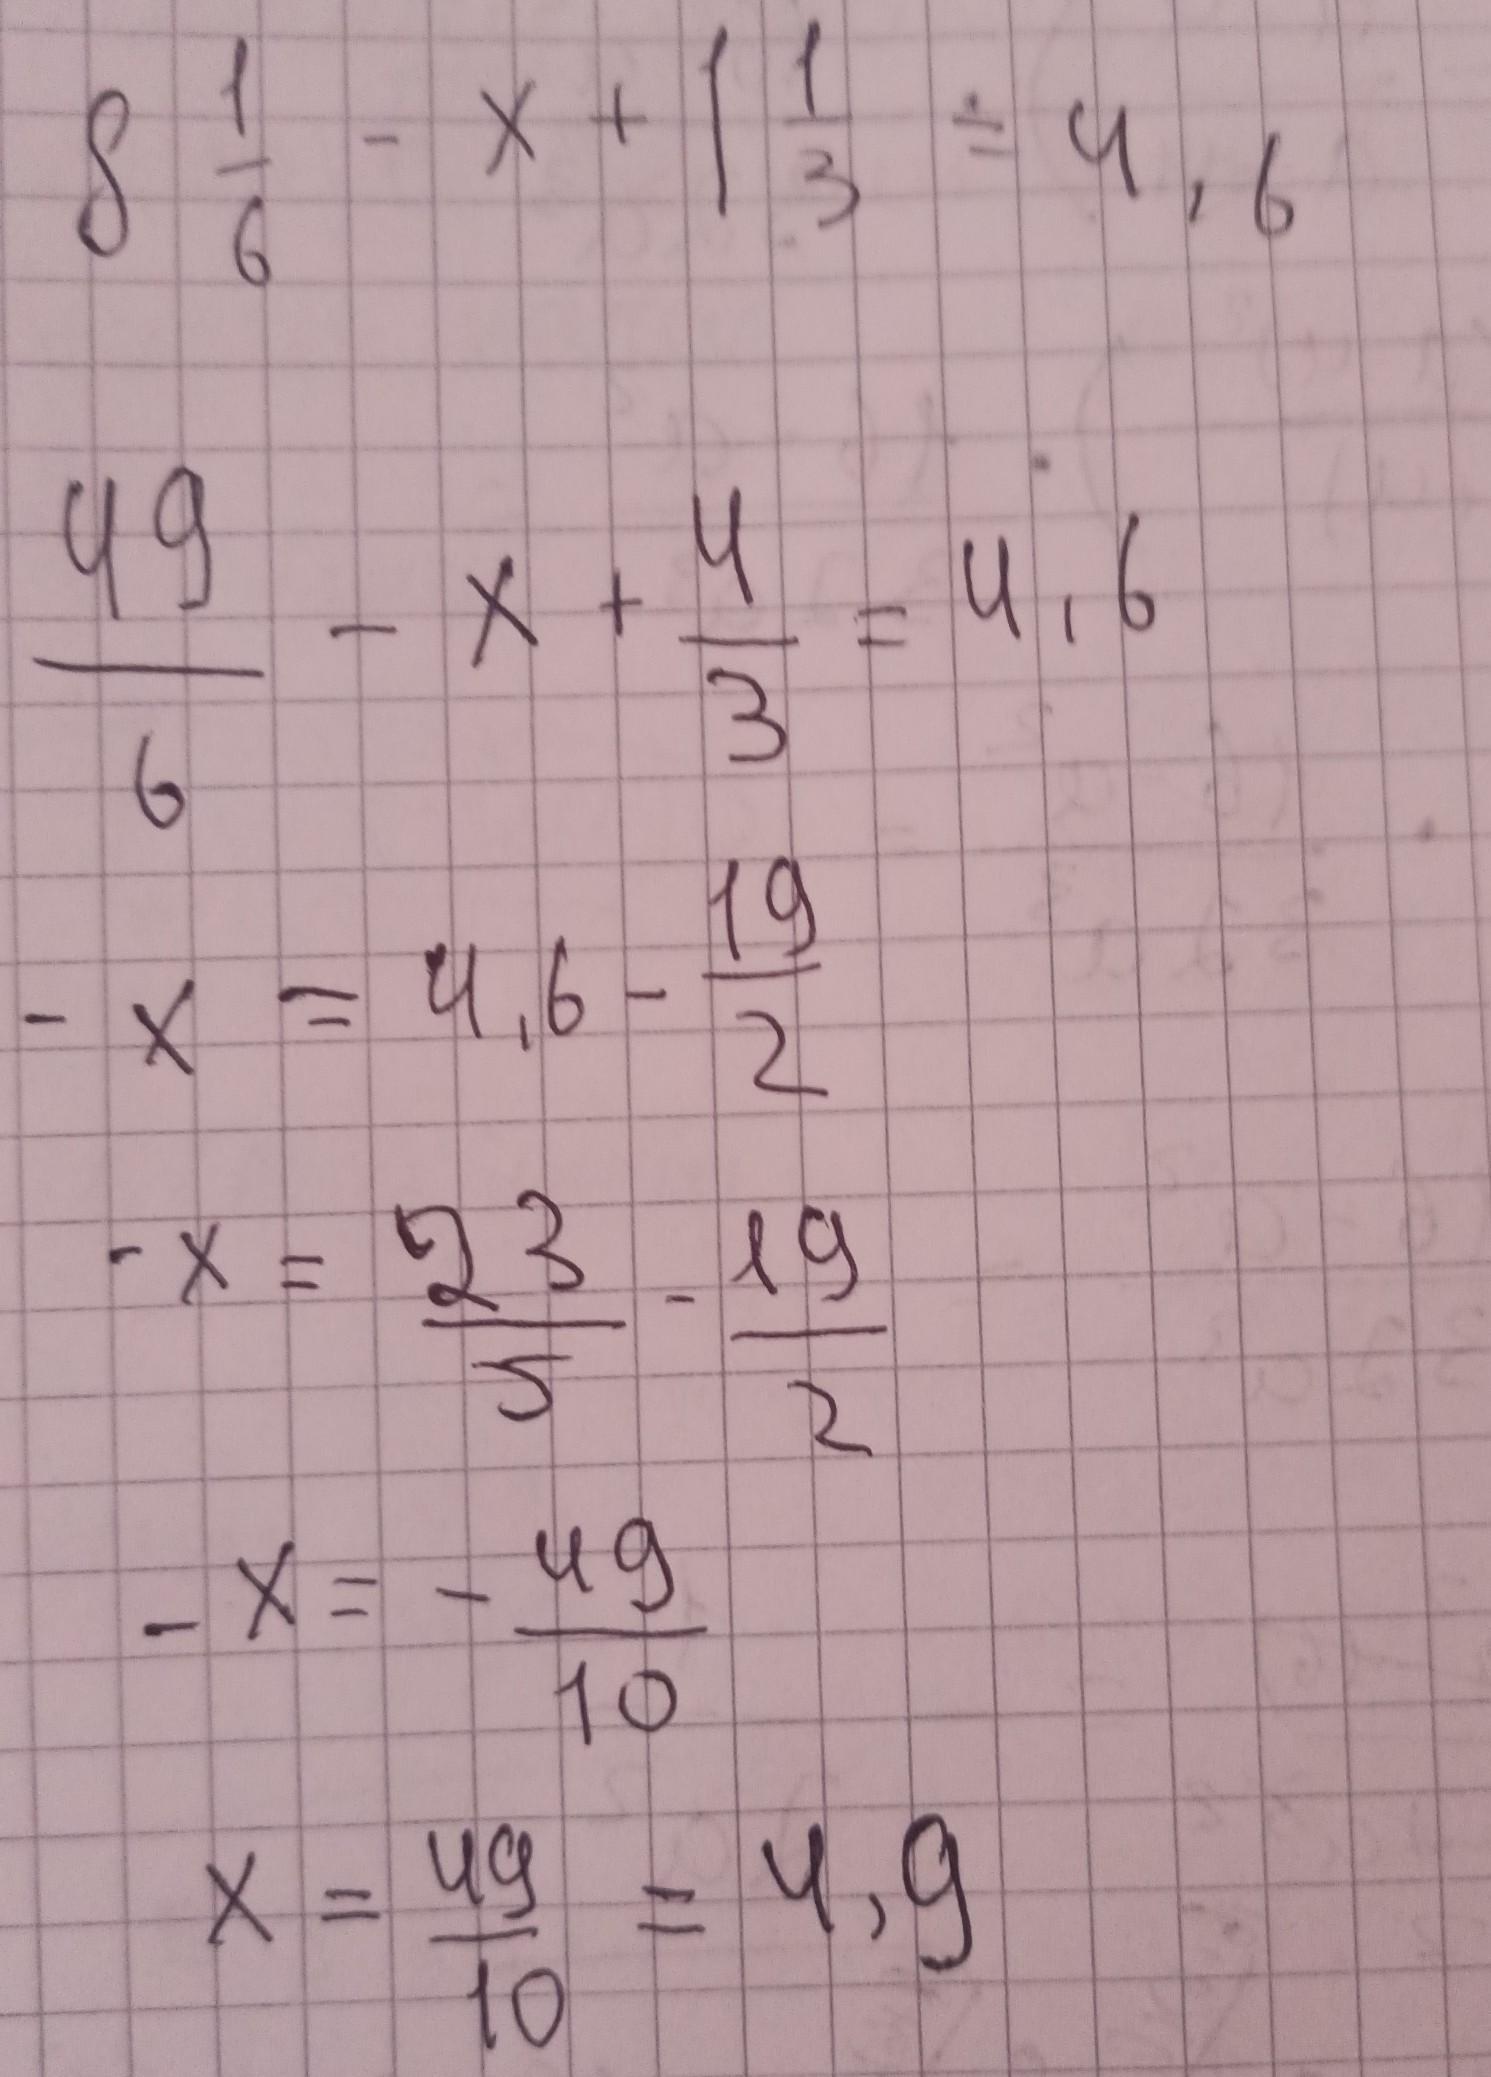 8 1/6 - x + 1 1/3 = 4,6
49/6 - x + 4/3 = 4,6
- x = 4,6 - 19/2
- x = 23/5 - 19/2
- x = - 49/10
x = 49/10 = 4,9